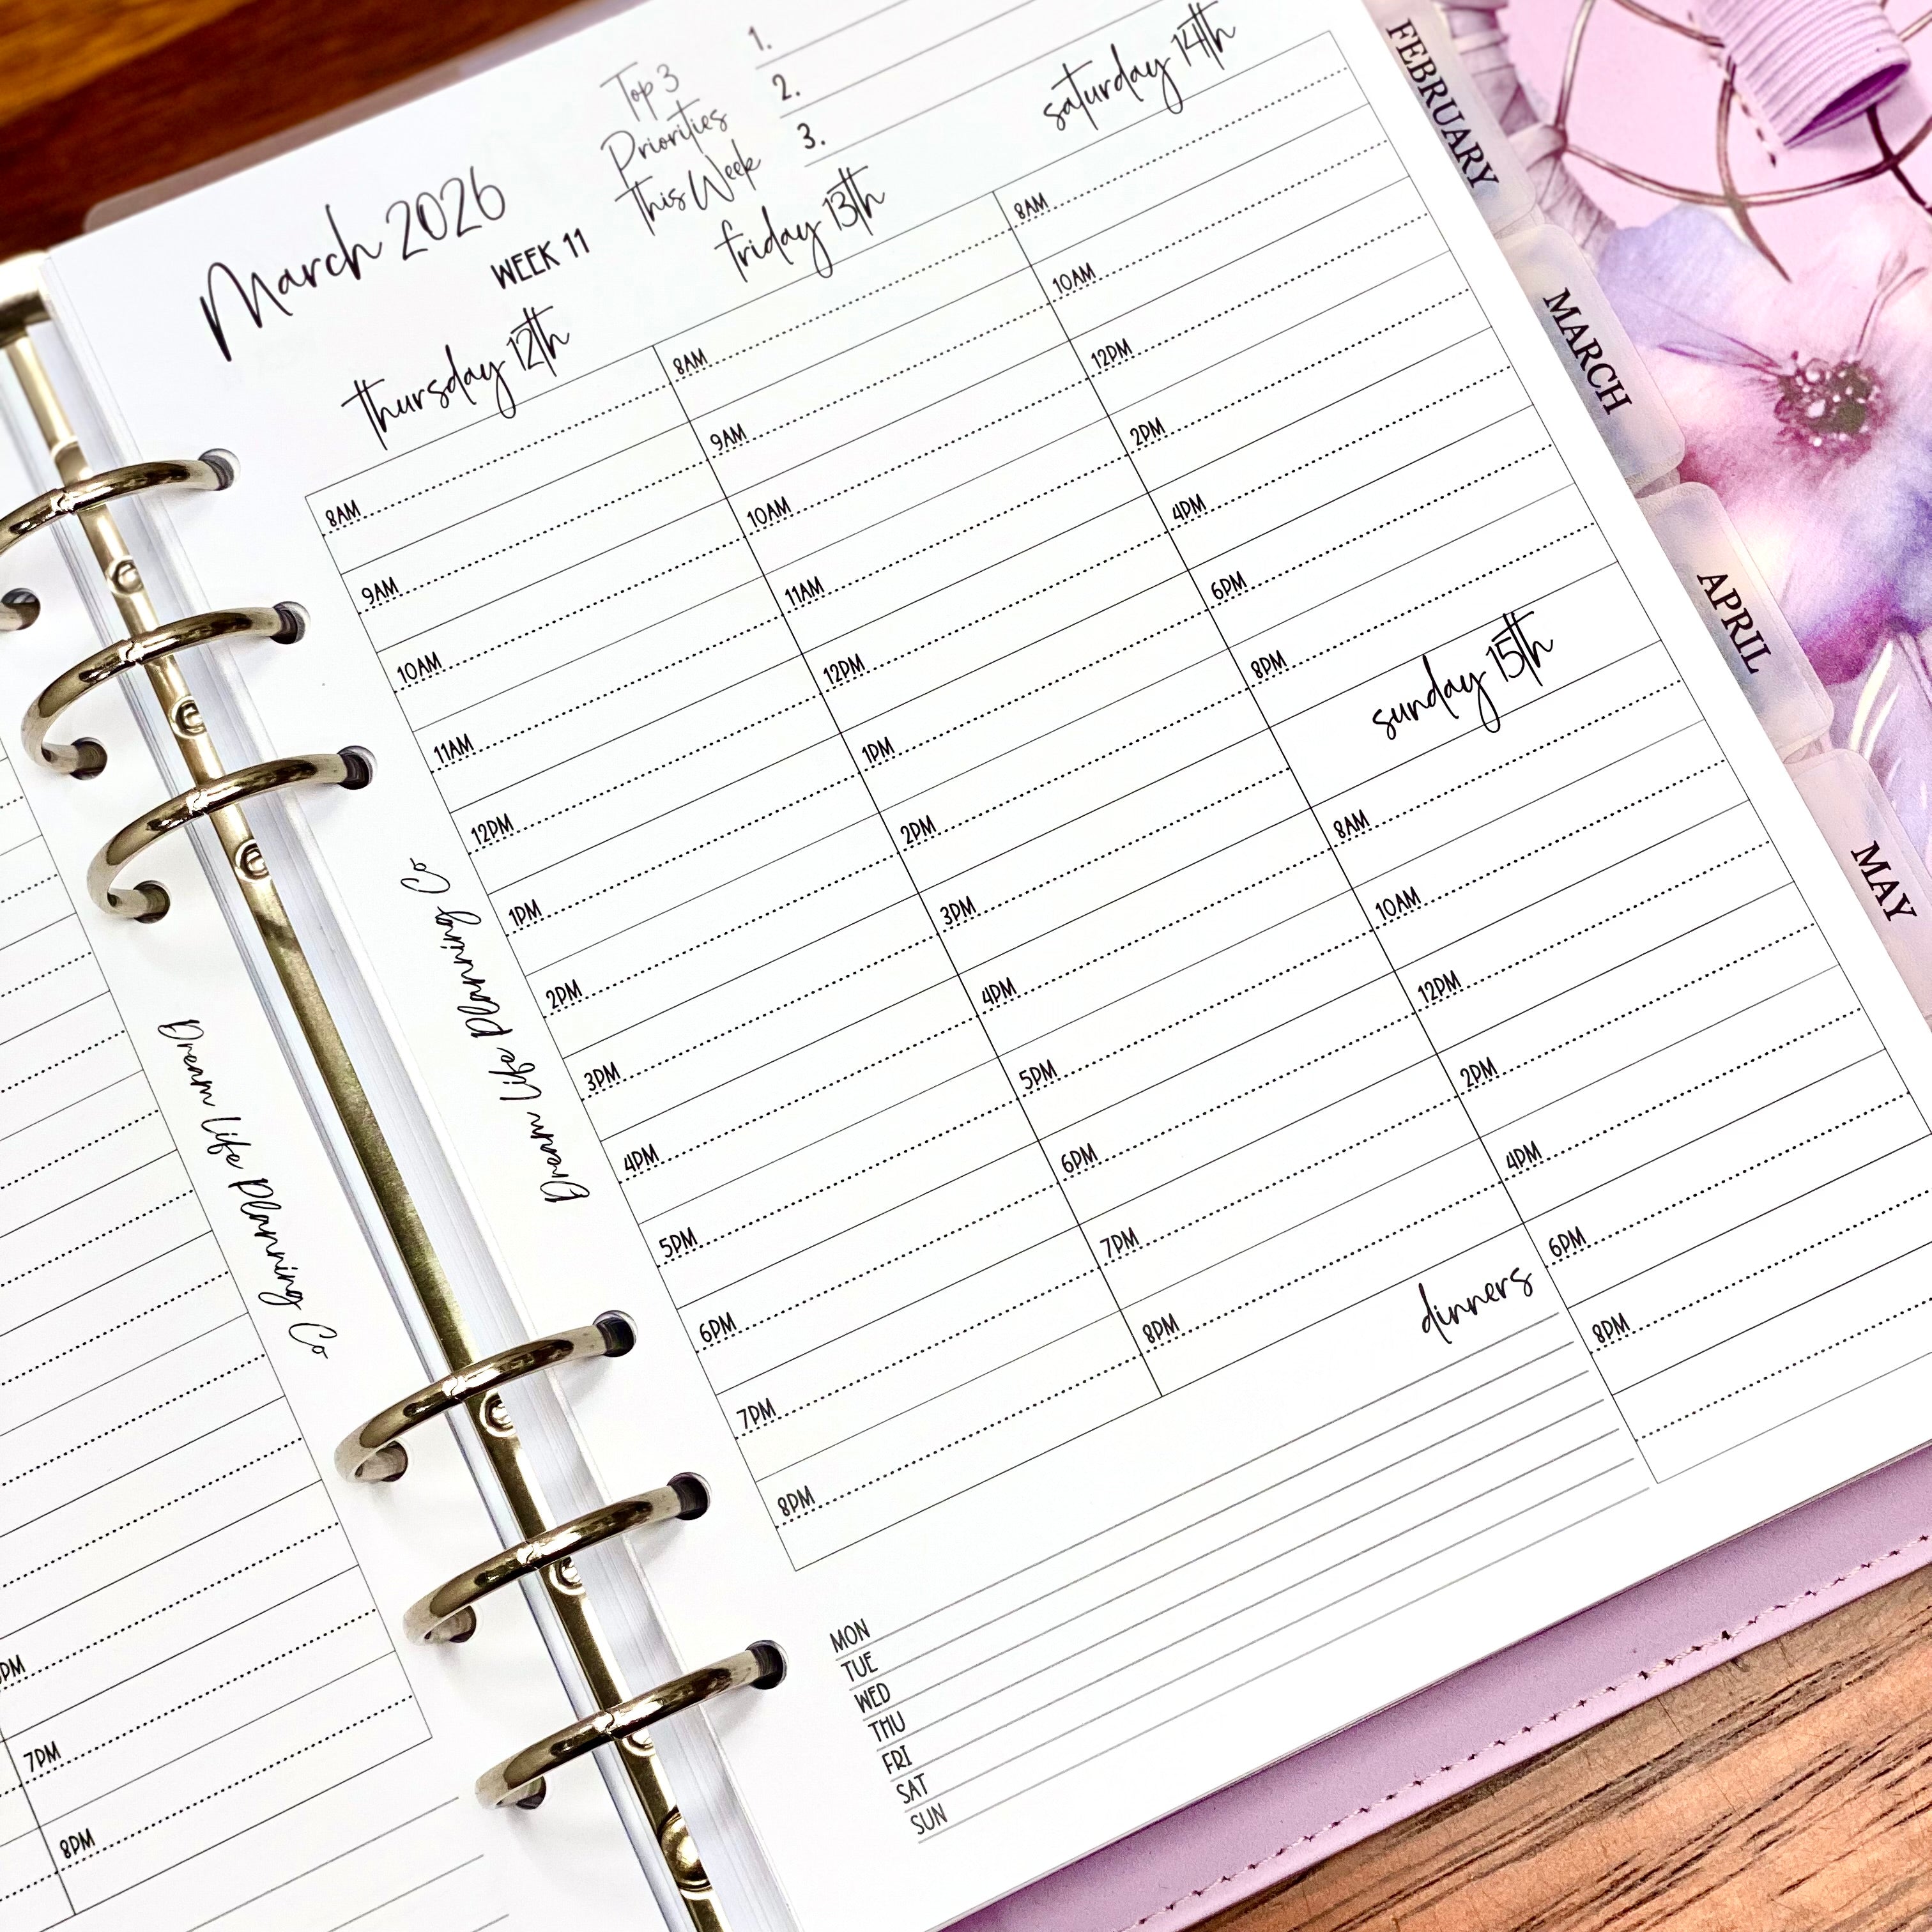 March 2026
WEEK 11
Top 3
Priorities
This Week
1.
2.
3.
thursday 12th
8AM
9AM
10AM
11AM
12PM
1PM
2PM
3PM
4PM
5PM
6PM
7PM
8PM
friday 13th
8AM
9AM
10AM
11AM
12PM
1PM
2PM
3PM
4PM
5PM
6PM
7PM
8PM
saturday 14th
8AM
10AM
12PM
2PM
4PM
6PM
8PM
sunday 15th
8AM
10AM
12PM
2PM
4PM
6PM
8PM
dinners
MON
TUE
WED
THU
FRI
SAT
SUN
Dream Life Planning Co
Dream Life Planning Co
7PM
8PM
FEBRUARY
MARCH
APRIL
MAY